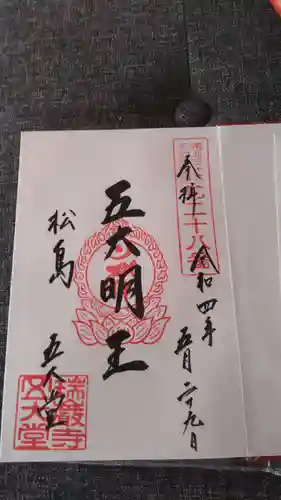 奉拝
令和四年
五月二十九日
五大明王
松島
五大堂
瑞巌寺
五大堂